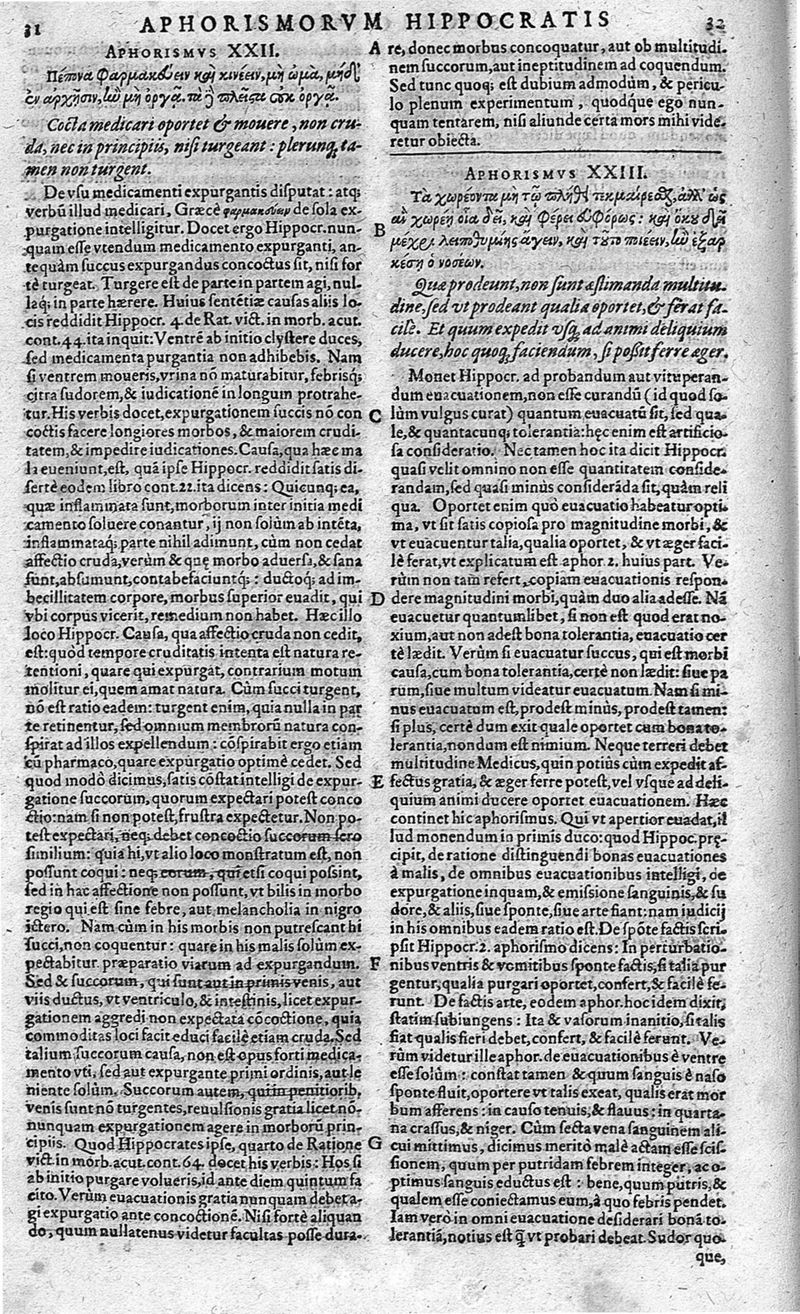 31 APHORISMORVM HIPPOCRATIS 32
APHORISMVS XXII.
Πέπονα φαρμακεύειν καὶ κινέειν, μὴ ὠμὰ, μηδὲ
ἐν ἀρχῇσιν, ἢν μὴ ὀργᾷ. τὰ δὲ πλεῖστα οὐκ ὀργᾷ.
Cocta medicari oportet & mouere, non cru-
da, nec in principiis, nisi turgeant: plerunq; ta-
men non turgent.
De vsu medicamenti expurgantis disputat: atq;
verbū illud medicari, Græcè φαρμακεύειν de sola ex-
purgatione intelligitur. Docet ergo Hippocr. nun-
quam esse vtendum medicamento expurganti, an-
tequàm succus expurgandus concoctus sit, nisi for
tè turgeat. Turgere est de parte in partem agi, nul-
laq; in parte hærere. Huius sentētiæ causas aliis lo-
cis reddidit Hippocr. 4. de Rat. vict. in morb. acut.
cont. 44. ita inquit: Ventrē ab initio clystere duces,
sed medicamenta purgantia non adhibebis. Nam
si ventrem moueris, vrina nō maturabitur, febrisq;
citra sudorem, & iudicationē in longum protrahe-
tur. His verbis docet, expurgationem succis nō con
coctis facere longiores morbos, & maiorem crudi-
tatem, & impedire iudicationes. Causa, qua hæc ma
la eueniunt, est, quā ipse Hippocr. reddidit satis di-
sertè eodem libro cont. 22. ita dicens: Quicunq; ea,
quæ inflammata sunt, morborum inter initia medi
camento soluere conantur, ij non solùm ab intēta,
inflammataq; parte nihil adimunt, cùm non cedat
affectio cruda, verùm & quę morbo aduersa, & sana
sunt, absumunt, contabefaciuntq; : ductoq; ad im-
becillitatem corpore, morbus superior euadit, qui
vbi corpus vicerit, remedium non habet. Hæc illo
loco Hippocr. Causa, qua affectio cruda non cedit,
est: quòd tempore cruditatis intenta est natura re-
tentioni, quare qui expurgat, contrarium motum
molitur ei, quem amat natura. Cùm succi turgent,
nō est ratio eadem: turgent enim, quia nulla in par
te retinentur, sed omnium membrorū natura con-
spirat ad illos expellendum: cōspirabit ergo etiam
cū pharmaco, quare expurgatio optimè cedet. Sed
quod modò dicimus, satis cōstat intelligi de expur-
gatione succorum, quorum expectari potest conco
ctio: nam si non potest, frustra expectetur. Non po-
test expectari, neq; debet concoctio succorum sero
similium: quia hi, vt alio loco monstratum est, non
possunt coqui: neq; eorum, qui etsi coqui possint,
sed in hac affectione non possunt, vt bilis in morbo
regio qui est sine febre, aut melancholia in nigro
ictero. Nam cùm in his morbis non putrescant hi
succi, non coquentur: quare in his malis solùm ex-
pectabitur præparatio viarum ad expurgandum.
Sed & succorum, qui sunt aut in primis venis, aut
viis ductus, vt ventriculo, & intestinis, licet expur-
gationem aggredi non expectata cōcoctione, quia
commoditas loci facit educi facilè etiam cruda. Sed
talium succorum causa, non est opus forti medica-
mento vti, sed aut expurgante primi ordinis, aut le
niente solùm. Succorum autem, qui in penitiorib,
venis sunt nō turgentes, reuulsionis gratia licet nō-
nunquam expurgationem agere in morborū prin-
cipiis. Quod Hippocrates ipse, quarto de Ratione
vict. in morb. acut. cont. 64. docet his verbis: Hos si
ab initio purgare volueris, id ante diem quintum fa
cito. Verùm euacuationis gratia nunquam debet a-
gi expurgatio ante concoctionē. Nisi fortè aliquan
do, quum nullatenus videtur facultas posse dura-
A re, donec morbus concoquatur, aut ob multitudi-
nem succorum, aut ineptitudinem ad coquendum.
Sed tunc quoq; est dubium admodùm, & pericu-
lo plenum experimentum, quodque ego nun-
quam tentarem, nisi aliunde certa mors mihi vide-
retur obiecta.
APHORISMVS XXIII.
Τὰ χωρέοντα μὴ τῷ πλήθει τεκμαίρεσθαι, ἀλλ' ὡς
B ἂν χωρέῃ οἷα δεῖ, καὶ φέρει εὐφόρως: καὶ ὅκου δεῖ
μέχρι λειποθυμίης ἄγειν, καὶ τοῦτο ποιέειν, ἢν ἐξαρ-
κέσῃ ὁ νοσέων.
Quæ prodeunt, non sunt æstimanda multitu-
dine, sed vt prodeant qualia oportet, & ferat fa-
cilè. Et quum expedit vsq; ad animi deliquium
ducere, hoc quoq; faciendum, si possit ferre æger.
Monet Hippocr. ad probandum aut vituperan-
dum euacuationem, non esse curandū (id quod so-
C lùm vulgus curat) quantum euacuatū sit, sed qua-
le, & quantacunq; tolerantia: hęc enim est artificio-
sa consideratio. Nec tamen hoc ita dicit Hippocr.
quasi velit omnino non esse quantitatem conside-
randam, sed quasi minùs considerāda sit, quàm reli
qua. Oportet enim quò euacuatio habeatur opti-
ma, vt sit satis copiosa pro magnitudine morbi, &
vt euacuentur talia, qualia oportet, & vt æger faci-
lè ferat, vt explicatum est aphor. 2. huius part. Ve-
rùm non tam refert, copiam euacuationis respon-
D dere magnitudini morbi, quàm duo alia adesse. Nā
euacuetur quantumlibet, si non est quod erat no-
xium, aut non adest bona tolerantia, euacuatio cer
tè lædit. Verùm si euacuatur succus, qui est morbi
causa, cum bona tolerantia, certè non lædit: siue pa
rùm, siue multum videatur euacuatum. Nam si mi-
nus euacuatum est, prodest minùs, prodest tamen:
si plus, certè dum exit quale oportet cum bona to-
lerantia, nondum est nimium. Neque terreri debet
multitudine Medicus, quin potiùs cùm expedit af-
E fectus gratia, & æger ferre potest, vel vsque ad deli-
quium animi ducere oportet euacuationem. Hæc
continet hic aphorismus. Qui vt apertior euadat, il
lud monendum in primis duco: quod Hippoc. prę-
cipit, de ratione distinguendi bonas euacuationes
à malis, de omnibus euacuationibus intelligi, de
expurgatione inquam, & emissione sanguinis, & su
dore, & aliis, siue sponte, siue arte fiant: nam iudicij
in his omnibus eadem ratio est. De spōte factis scri-
psit Hippocr. 2. aphorismo dicens: In perturbatio-
F nibus ventris & vomitibus sponte factis, si talia pur
gentur, qualia purgari oportet, confert, & facilè fe-
runt. De factis arte, eodem aphor. hoc idem dixit,
statim subiungens: Ita & vasorum inanitio, si talis
fiat qualis fieri debet, confert, & facilè ferunt. Ve-
rùm videtur ille aphor. de euacuationibus è ventre
esse solùm: constat tamen & quum sanguis è naso
sponte fluit, oportere vt talis exeat, qualis erat mor
bum afferens: in causo tenuis, & flauus: in quarta-
na crassus, & niger. Cùm secta vena sanguinem ali-
G cui mittimus, dicimus meritò malè actam esse scis-
sionem, quum per putridam febrem integer, ac o-
ptimus sanguis eductus est: bene, quum putris, &
qualem esse coniectamus eum, à quo febris pendet.
Iam verò in omni euacuatione desiderari bonā to-
lerantiā, notius est q̄ vt probari debeat. Sudor quo-
que,